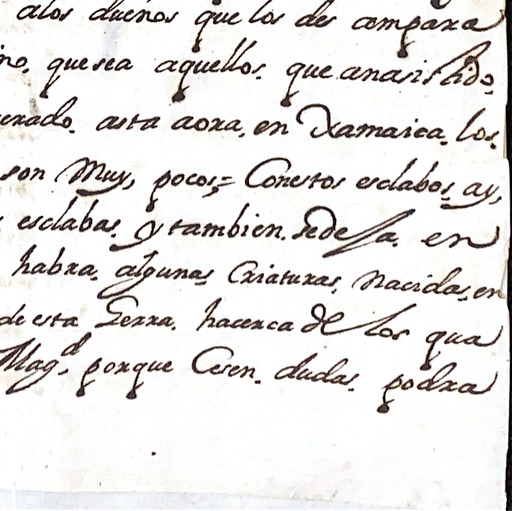 alos dueños que los des ampara
no. que sea aquellos. que an asistido.
erado. asta aora, en Xamaica, los.
son Muy, pocos,= Con estos esclabos, ay,
esclabas. y tambien. se desea. en
habra. algunas Criaturas, nacidas, en
de esta Gerra. hacerca de los qua
Magd, porque Cesen. dudas. podra